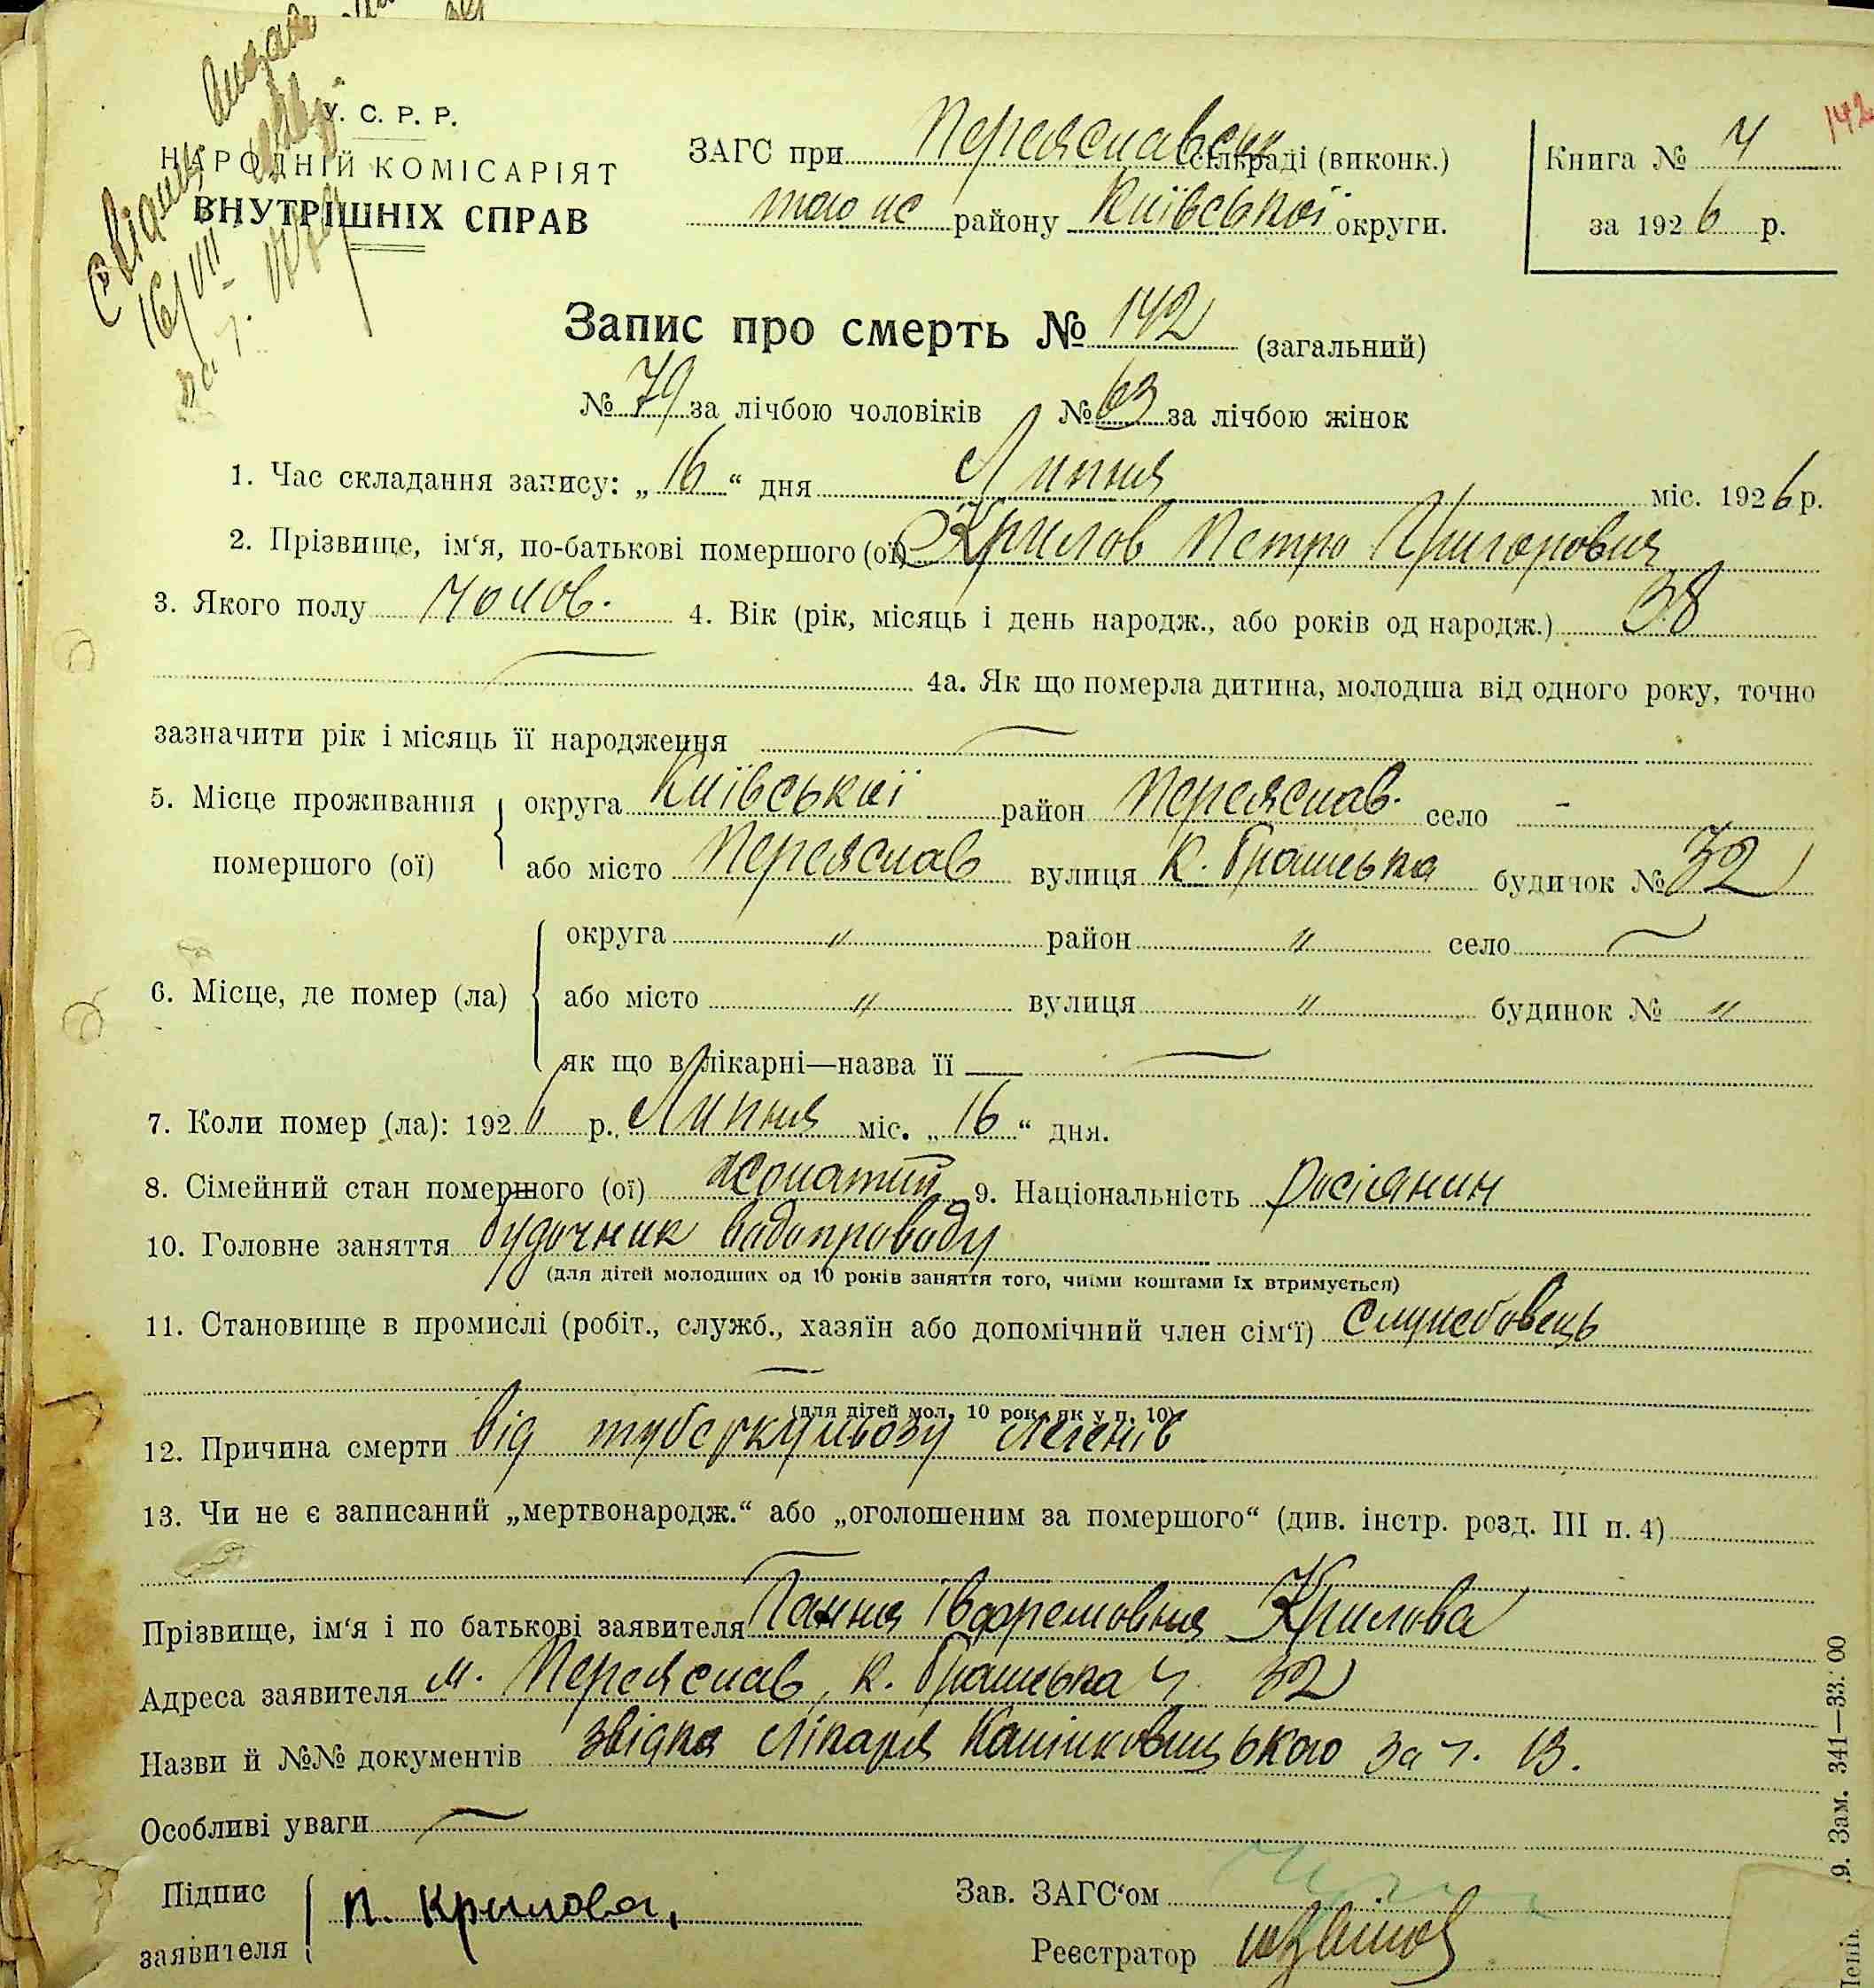 У. С. Р. Р.
НАРОДНІЙ КОМІСАРІЯТ
ВНУТРІШНІХ СПРАВ
ЗАГС при Переяславськ сількраді (виконк.)
того ж району Київської округи.
Книга № 4
за 1926 р.
142
16/VII
Запис про смерть № 142 (загальний)
№ 79 за лічбою чоловіків № 63 за лічбою жінок
1. Час складання запису: „16“ дня Липня міс. 1926 р.
2. Прізвище, ім‘я, по-батькові помершого (ої) Крилов Петро Григорович
3. Якого полу чолов. 4. Вік (рік, місяць і день народж., або років од народж.) 38
4а. Як що померла дитина, молодша від одного року, точно
зазначити рік і місяць її народження
5. Місце проживання помершого (ої) округа Київської район Переяслав. село -
або місто Переяслав вулиця К. Брамська будинок № 32
6. Місце, де помер (ла) округа " район " село
або місто " вулиця " будинок № "
як що в лікарні—назва її
7. Коли помер (ла): 1926 р. Липня міс. „16“ дня.
8. Сімейний стан помершого (ої) жонатий 9. Національність росіянин
10. Головне заняття будочник водопроводу
(для дітей молодших од 10 років заняття того, чиїми коштами їх втримується)
11. Становище в промислі (робіт., служб., хазяїн або допомічний член сім‘ї) Службовець
(для дітей мол. 10 рок. як у п. 10)
12. Причина смерти від туберкульозу легенів
13. Чи не є записаний „мертвонародж.“ або „оголошеним за помершого“ (див. інстр. розд. III п. 4)
Прізвище, ім‘я і по батькові заявителя Ганна Крилова
Адреса заявителя м. Переяслав, К. Брамська ч. 32
Назви й №№ документів звідка лікаря за ч. 13.
Особливі уваги
Підпис заявителя п. Крилова,
Зав. ЗАГС‘ом
Реєстратор
9. Зам. 341—33.'00